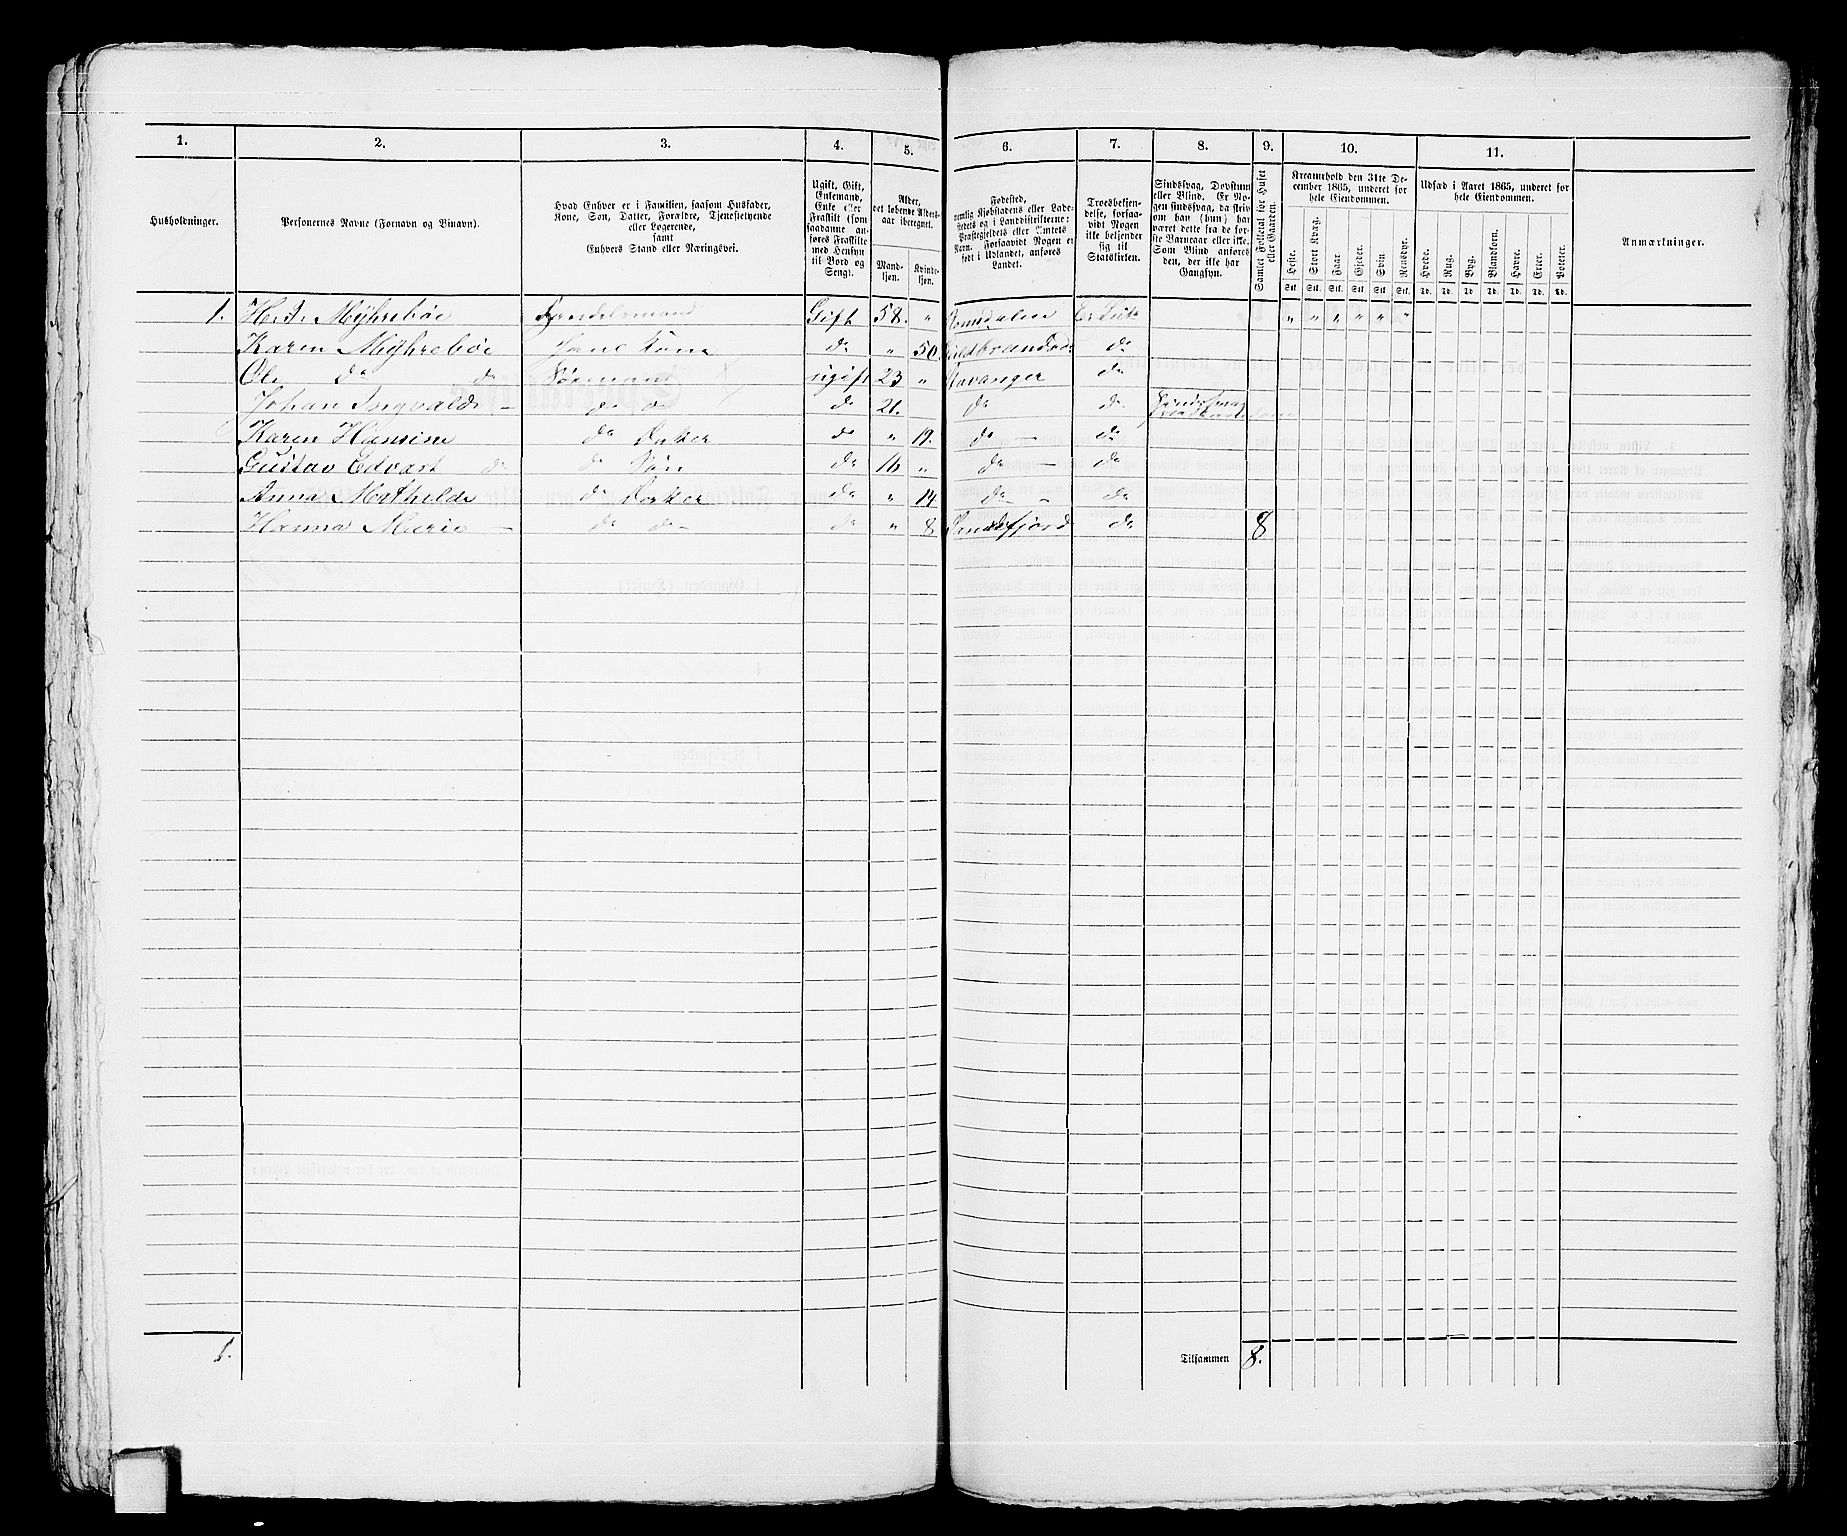 1. 2. 3. 4. 5. 6. 7. 8. 9. 10. 11.
Husholdninger.
Personernes Navne (Fornavn og Binavn).
Hvad Enhver er i Familien, saasom Husfader,
Kone, Søn, Datter, Forældre, Tjenestetyende
eller Logerende,
samt
Enhvers Stand eller Næringsvei.
Ugift, Gift,
Enkemand,
Enke eller
Fraskilt (som
saadanne an-
føres Fraskilte
med Hensyn
til Bord og
Seng).
Alder,
det løbende Alders-
aar iberegnet.
Mand-
kjøn.
Kvinde-
kjøn.
Fødested,
nemlig Kjøbstadens eller Lade-
stedets og i Landdistrikterne:
Præstegjeldets eller Amtets
Navn. Forsaavidt Nogen er
født i Udlandet, anføres
Landet.
Troesbekjen-
delse, forsaa-
vidt Nogen
ikke bekjender
sig til
Statskirken.
Sindssvag, Døvstum
eller Blind. Er No-
gen sindssvag, da skriv
om han (hun) har
været dette fra de før-
ste Barneaar eller ikke.
Som Blind anføres
den, der ikke har
Gangsyn.
Samlet Folketal for Huset
eller Gaarden.
Kreaturhold den 31te De-
cember 1865, underet for
hele Eiendommen.
Heste. Stort Kvæg. Faar. Gjeder. Svin. Rensdyr.
Stk. Stk. Stk. Stk. Stk. Stk.
Udsæd i Aaret 1865, underet for
hele Eiendommen.
Hvede. Rug. Byg. Blandkorn. Havre. Erter. Poteter.
Td. Td. Td. Td. Td. Td. Td.
Anmærkninger.
1. H. J. Myhrebøe Handelsmand Gift 58. " Romsdalen Ev. Luth " " " " " "
Karen Myhrebøe Hans Kone do " 50. do
Ole do do Sømand ugift 23 " Stavanger do
Johan Ingvald — do do do 21. do do
Karen Hansine do Datter do " 19. do — do
Gustav Edvart do do Søn do 16 " do — do
Anna Mathilde do Datter do " 14 do — " do
Hanna Marie — do do — do " 8 Sandefjord do 8
1.
Tilsammen 8.